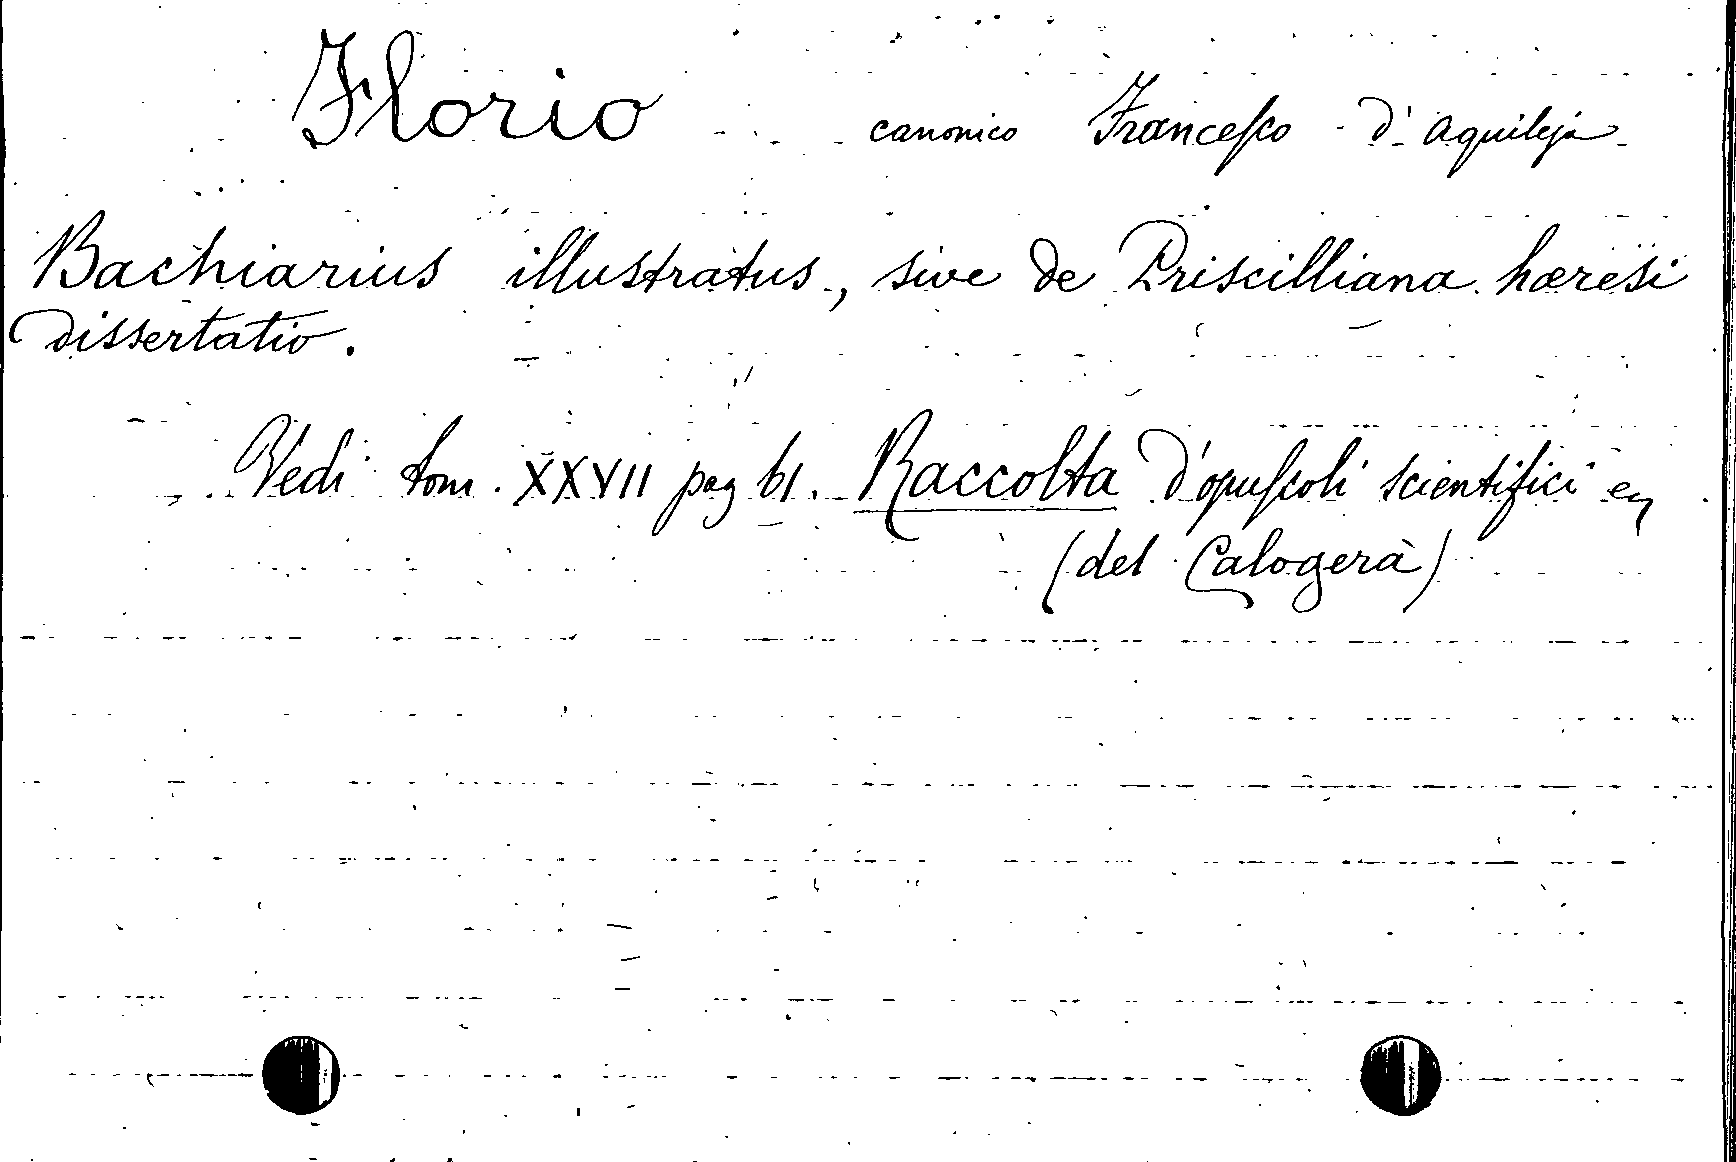 Florio canonico Franceſco d'Aquileja
Bachiarius illustratus, sive de Priscilliana hæresi
dissertatio.
Vedi tom. XXVII pag 61. Raccolta d'opuſcoli scientifici
(del Calogerà)